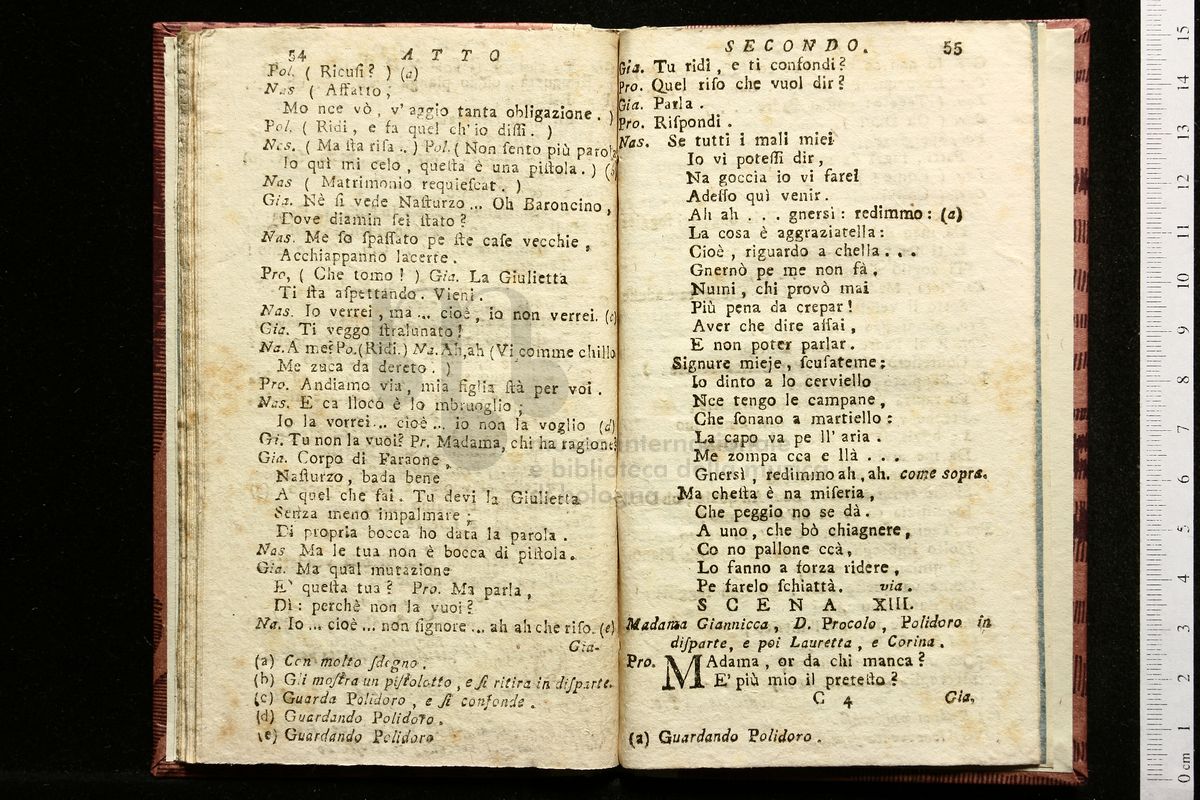 54 ATTO
Pol. ( Ricusi? ) (a)
Nas ( Affatto,
Mo nce vò, v'aggio tanta obligazione. )
Pol. ( Ridi, e fa quel ch'io dissi. )
Nas. ( Ma sta risa .. ) Pol. ( Non sento più
Io quì mi celo, questa è una pistola. )
Nas ( Matrimonio requiescat. )
Gia. Nè si vede Nasturzo ... Oh Baroncino,
Dove diamin sei stato?
Nas. Me so spassato pe ste case vecchie,
Acchiappanno lacerte.
Pro, ( Che tomo! ) Gia. La Giulietta
Ti sta aspettando. Vieni.
Nas. Io verrei, ma ... cioè, io non verrei. (c)
Gia. Ti veggo stralunato!
Na. A me? Po. (Ridi.) Na. Ah, ah (Vi comme chillo
Me zuca da dereto. )
Pro. Andiamo via, mia figlia stà per voi.
Nas. E ca lloco è lo mbruoglio;
Io la vorrei... cioè ... io non la voglio (d)
Gi. Tu non la vuoi? Pr. Madama, chi ha ragione?
Gia. Corpo di Faraone,
Nasturzo, bada bene
A quel che fai. Tu devi la Giulietta
Senza meno impalmare;
Di propria bocca ho data la parola.
Nas Ma le tua non è bocca di pistola.
Gia. Ma qual mutazione
E' questa tua? Pro. Ma parla,
Dì: perchè non la vuoi?
Na. Io ... cioè ... non signore ... ah ah che riso. (e)
Gia-
(a) Con molto sdegno.
(b) Gli mostra un pistolotto, e si ritira in disparte.
(c) Guarda Polidoro, e si confonde.
(d) Guardando Polidoro.
(e) Guardando Polidoro
SECONDO. 55
Gia. Tu ridi, e ti confondi?
Pro. Quel riso che vuol dir?
Gia. Parla.
Pro. Rispondi.
Nas. Se tutti i mali miei
Io vi potessi dir,
Na goccia io vi farei
Adesso quì venir.
Ah ah . . . gnersi: redimmo: (a)
La cosa è aggraziatella:
Cioè, riguardo a chella . . .
Gnernò pe me non fà.
Numi, chi provò mai
Più pena da crepar!
Aver che dire assai,
E non poter parlar.
Signure mieje, scusateme:
Io dinto a lo cerviello
Nce tengo le campane,
Che sonano a martiello:
La capo va pe ll'aria.
Me zompa cca e llà . . . .
Gnersì, redimmo ah, ah. come sopra.
Ma chesta è na miseria,
Che peggio no se dà.
A uno, che bò chiagnere,
Co no pallone ccà,
Lo fanno a forza ridere,
Pe farelo schiattà. via.
SCENA XIII.
Madama Giannicca, D. Procolo, Polidoro in
disparte, e poi Lauretta, e Corina.
Pro. MAdama, or da chi manca?
E' più mio il pretesto?
C 4 Gia,
(a) Guardando Polidoro.
internazionale
e biblioteca della musica
di Bologna
0 cm 1 2 3 4 5 6 7 8 9 10 11 12 13 14 15